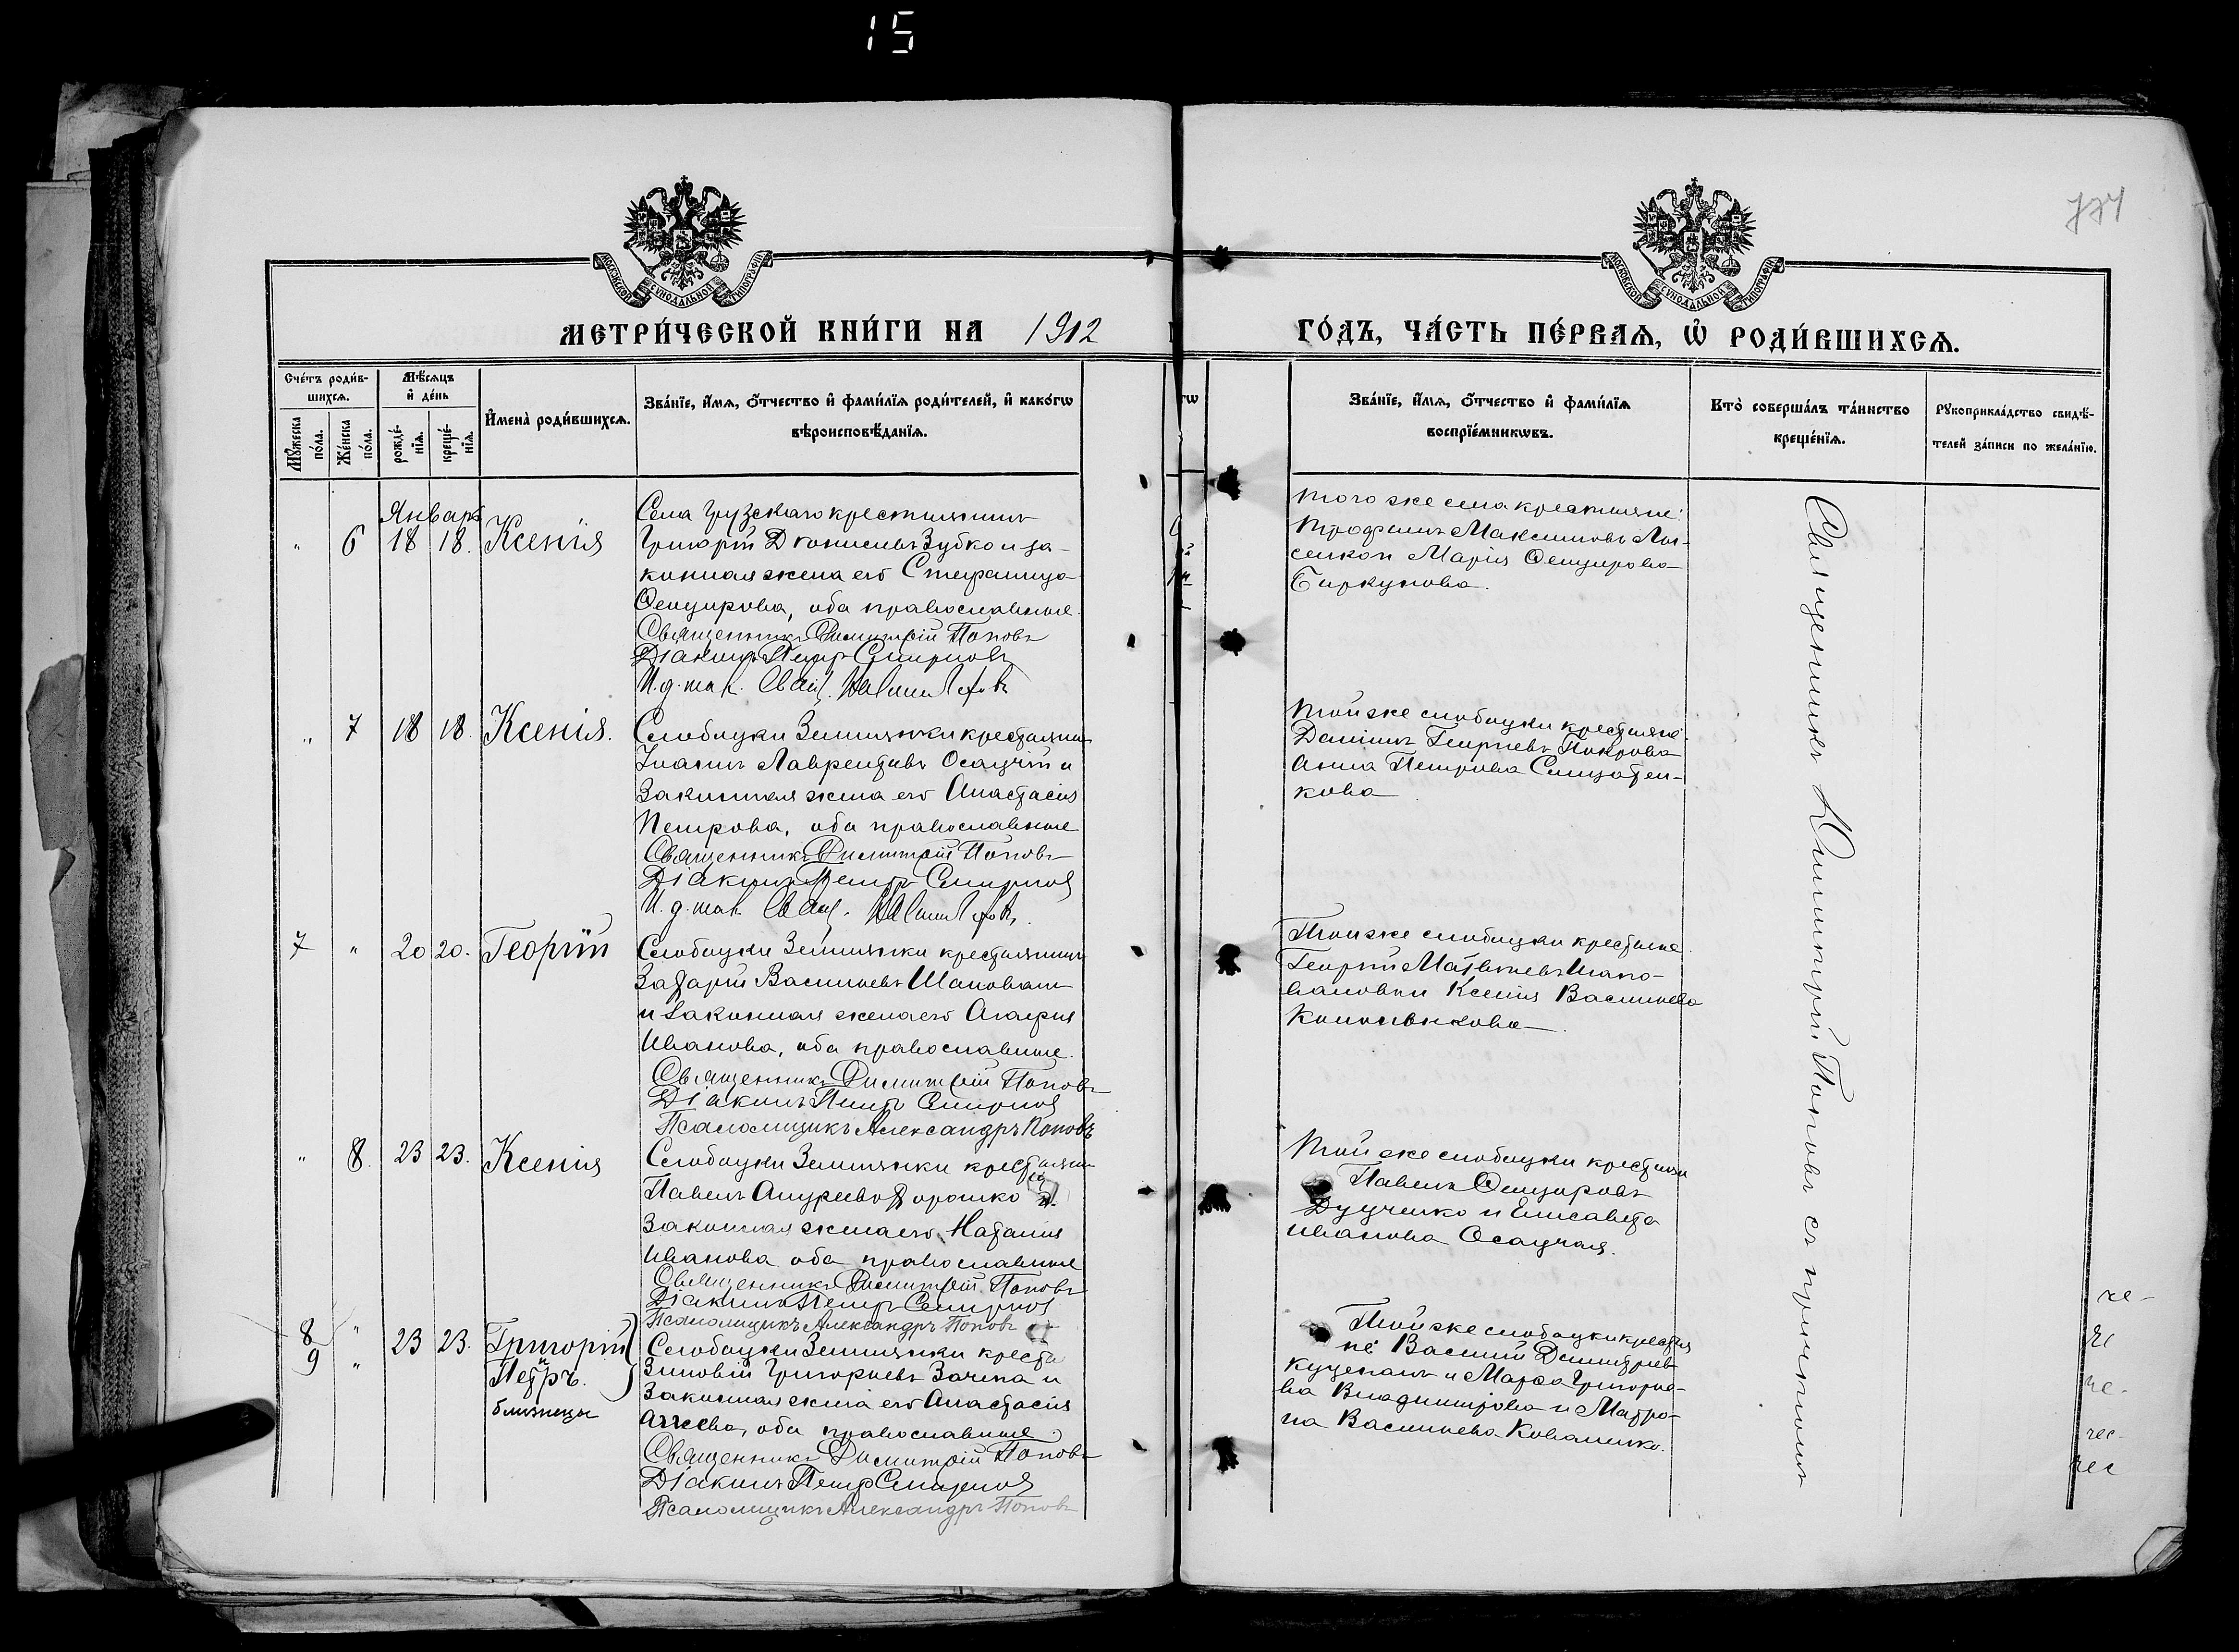 15
774
МОСКОВСКОЙ СѴНОДАЛЬНОЙ ТИПОГРАФІИ
МОСКОВСКОЙ СѴНОДАЛЬНОЙ ТИПОГРАФІИ
МЕТРИ́ЧЕСКОЙ КНИ́ГИ НА 1912
ГО́ДЪ, ЧА́СТЬ ПЕ́РВАѦ, Ѡ РОДИ́ВШИХСѦ.
Сче́тъ роди́в-
шихсѧ.
Мꙋ́жеска
по́ла.
Же́нска
по́ла.
Мѣ́сѧцъ
и҆ де́нь
рожде́-
нїѧ.
креще́-
нїѧ.
И҆мена̀ роди́вшихсѧ.
Зва́нїе, и҆́мѧ, ѻ҆́тчество и҆ фами́лїѧ роди́телей, и҆ како́гѡ
вѣроисповѣ́данїѧ.
Зва́нїе, и҆́мѧ, ѻ҆́тчество и҆ фами́лїѧ
воспрїе́мникѡвъ.
Кто̀ соверша́лъ та́инство
креще́нїѧ.
Рꙋкоприкла́дство свидѣ́-
телей за́писи по жела́нїю.
Январь
" 6 18 18. Ксенія
Села Грузскаго крестьянинъ
Григорій Діонисіевъ Зубко и за-
конная жена его Стефанида
Ѳеодорова, оба православные.
Священникъ Димитрій Поповъ
Діаконъ Петръ Смирновъ
И. д. псал. Свящ.
того же села крестьяне:
Трофимъ Максимовъ Лы-
сенко и Марія Ѳеодорова
Биркунова.
" 7 18 18. Ксенія.
Слободки Землянки крестьянинъ
Іоаннъ Лаврентіевъ Осадчій и
законная жена его Анастасія
Петрова, оба православные
Священникъ Димитрій Поповъ
Діаконъ Петръ Смирновъ
И. д. псал. Свящ.
той же слободки крестьяне:
Даніилъ Георгіевъ
Анна Петрова
кова
7 " 20 20. Георгій
Слободки Землянки крестьянинъ
Захарій Васильевъ Шаповалъ
и законная жена его Агафія
Иванова, оба православные.
Священникъ Димитрій Поповъ
Діаконъ Петръ Смирновъ
Псаломщикъ Александръ Поповъ
Той же слободки крестьяне.
Георгій Матвѣевъ Шапо-
валовъ и Ксенія Васильева
" 8. 23 23. Ксенія
Слободки Землянки крестьянинъ
Павелъ Андреевъ Дорошко и
законная жена его Наталія
Иванова оба православные
Священникъ Димитрій Поповъ
Діаконъ Петръ Смирновъ
Псаломщикъ Александръ Поповъ
Той же слободки крестьяне
Павелъ Ѳеодоровъ
Дудченко и Елисавета
Иванова Осадчая.
8 " 23 23. Григорій
9 " и Петръ.
близнецы
Слободки Землянки кресть
Зиновій Григорьевъ Зачепа и
законная жена его Анастасія
Агѣева, оба православные.
Священникъ Димитрій Поповъ
Діаконъ Петръ Смирновъ
Псаломщикъ Александръ Поповъ
Той же слободки крестья
не Василій Димитріевъ
и Марѳа Григорье-
ва Владимірова и Матро-
на Васильева Коваленко.
Священникъ Димитрій Поповъ съ причтомъ